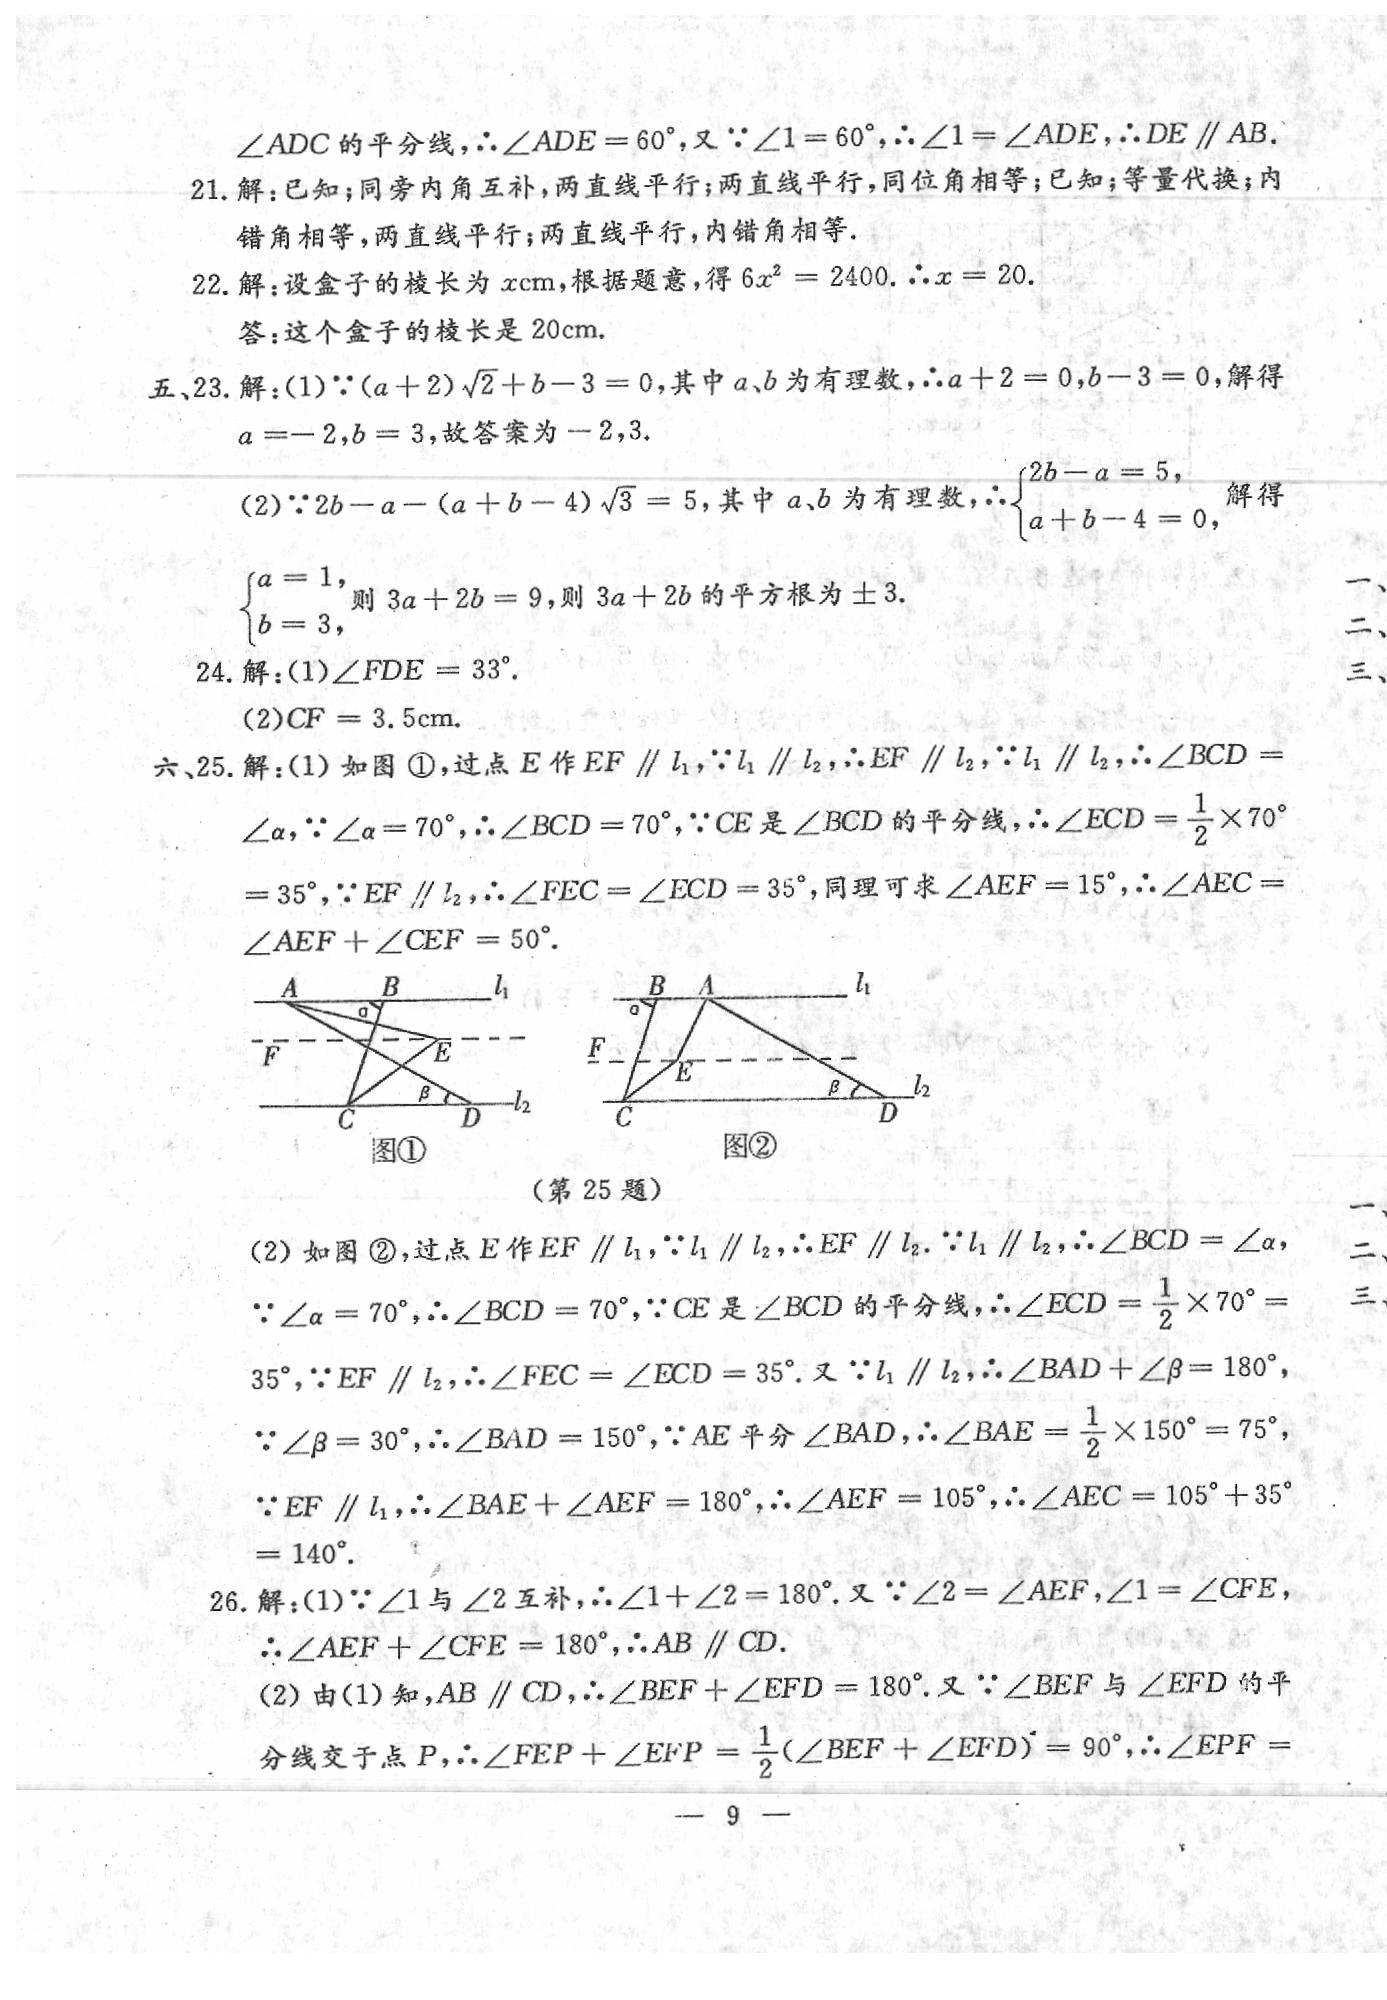 ∠ADC的平分线,∴∠ADE=60°,又∵∠1=60°,∴∠1=∠ADE,∴DE∥AB.
21.解:已知;同旁内角互补,两直线平行;两直线平行,同位角相等;已知;等量代换;内
错角相等,两直线平行;两直线平行,内错角相等.
22.解:设盒子的棱长为xcm,根据题意,得6x²=2400.∴x=20.
答:这个盒子的棱长是20cm.
五、23.解:(1)∵(a+2)√2+b-3=0,其中a、b为有理数,∴a+2=0,b-3=0,解得
a=-2,b=3,故答案为-2,3.
(2)∵2b-a-(a+b-4)√3=5,其中a、b为有理数,∴{2b-a=5, a+b-4=0, 解得
{a=1, b=3, 则3a+2b=9,则3a+2b的平方根为±3.
24.解:(1)∠FDE=33°.
(2)CF=3.5cm.
六、25.解:(1)如图①,过点E作EF∥l₁,∵l₁∥l₂,∴EF∥l₂,∵l₁∥l₂,∴∠BCD=
∠α,∵∠α=70°,∴∠BCD=70°,∵CE是∠BCD的平分线,∴∠ECD=1/2×70°
=35°,∵EF∥l₂,∴∠FEC=∠ECD=35°,同理可求∠AEF=15°,∴∠AEC=
∠AEF+∠CEF=50°.
A B l₁
α
F E
β
C D l₂
图①
B A l₁
α
F E
β
C D l₂
图②
(第25题)
(2)如图②,过点E作EF∥l₁,∵l₁∥l₂,∴EF∥l₂.∵l₁∥l₂,∴∠BCD=∠α,
∵∠α=70°,∴∠BCD=70°,∵CE是∠BCD的平分线,∴∠ECD=1/2×70°=
35°,∵EF∥l₂,∴∠FEC=∠ECD=35°.又∵l₁∥l₂,∴∠BAD+∠β=180°,
∵∠β=30°,∴∠BAD=150°,∵AE平分∠BAD,∴∠BAE=1/2×150°=75°,
∵EF∥l₁,∴∠BAE+∠AEF=180°,∴∠AEF=105°,∴∠AEC=105°+35°
=140°.
26.解:(1)∵∠1与∠2互补,∴∠1+∠2=180°.又∵∠2=∠AEF,∠1=∠CFE,
∴∠AEF+∠CFE=180°,∴AB∥CD.
(2)由(1)知,AB∥CD,∴∠BEF+∠EFD=180°.又∵∠BEF与∠EFD的平
分线交于点P,∴∠FEP+∠EFP=1/2(∠BEF+∠EFD)=90°,∴∠EPF=
— 9 —
一、
二、
三、
一、
二、
三、